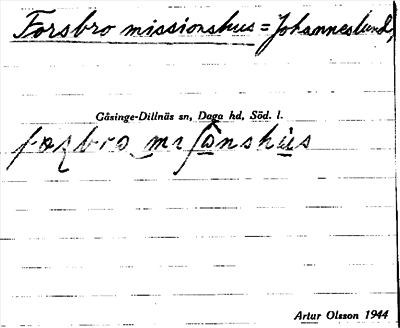 Forsbro missionshus = Johanneslund,
Gåsinge-Dillnäs sn, Daga hd, Söd. l.
Artur Olsson 1944